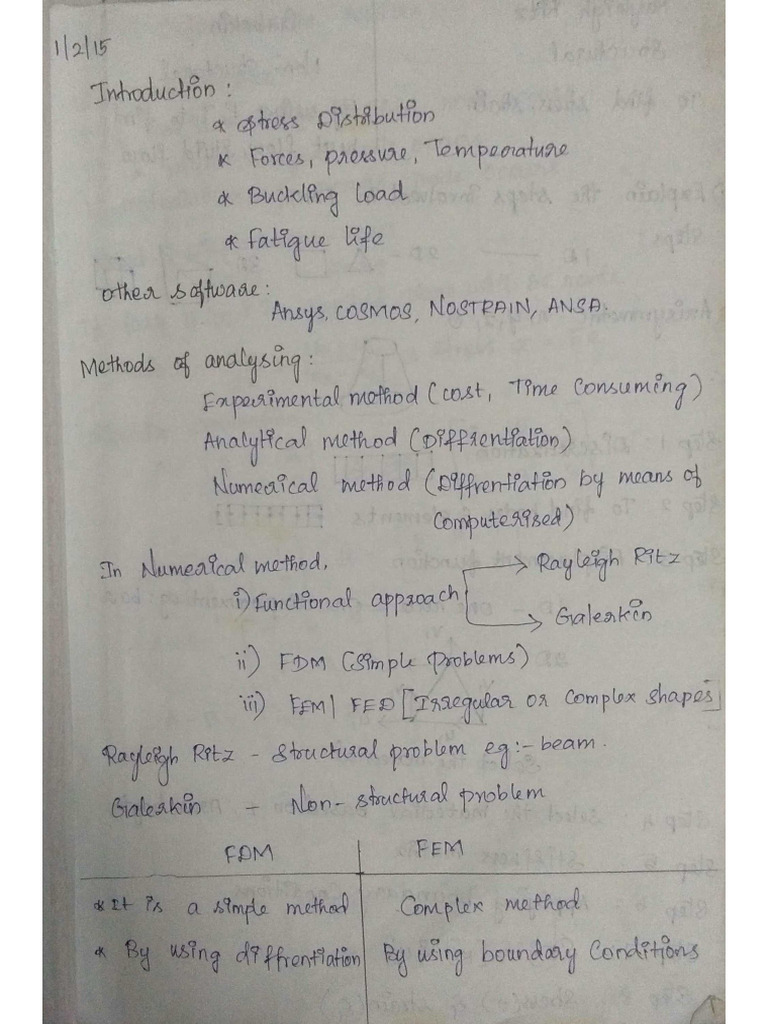 1/2/15
Introduction :
* Stress Distribution
* Forces, pressure, Temperature
* Buckling load
* Fatigue life
Other software:
Ansys, COSMOS, NOSTRAIN, ANSA.
Methods of analysing :
Experimental method (cost, Time Consuming)
Analytical method (Diffrentiation)
Numerical method (Diffrentiation by means of
Computerised)
In Numerical method,
i) Functional approach → Rayleigh Ritz
→ Galerkin
ii) FDM (simple problems)
iii) FEM | FED [Irregular or complex shapes]
Rayleigh Ritz - Structural problem eg:- beam.
Galerkin - Non-structural problem
FDM FEM
* It is a simple method Complex method
* By using diffrentiation By using boundary Conditions